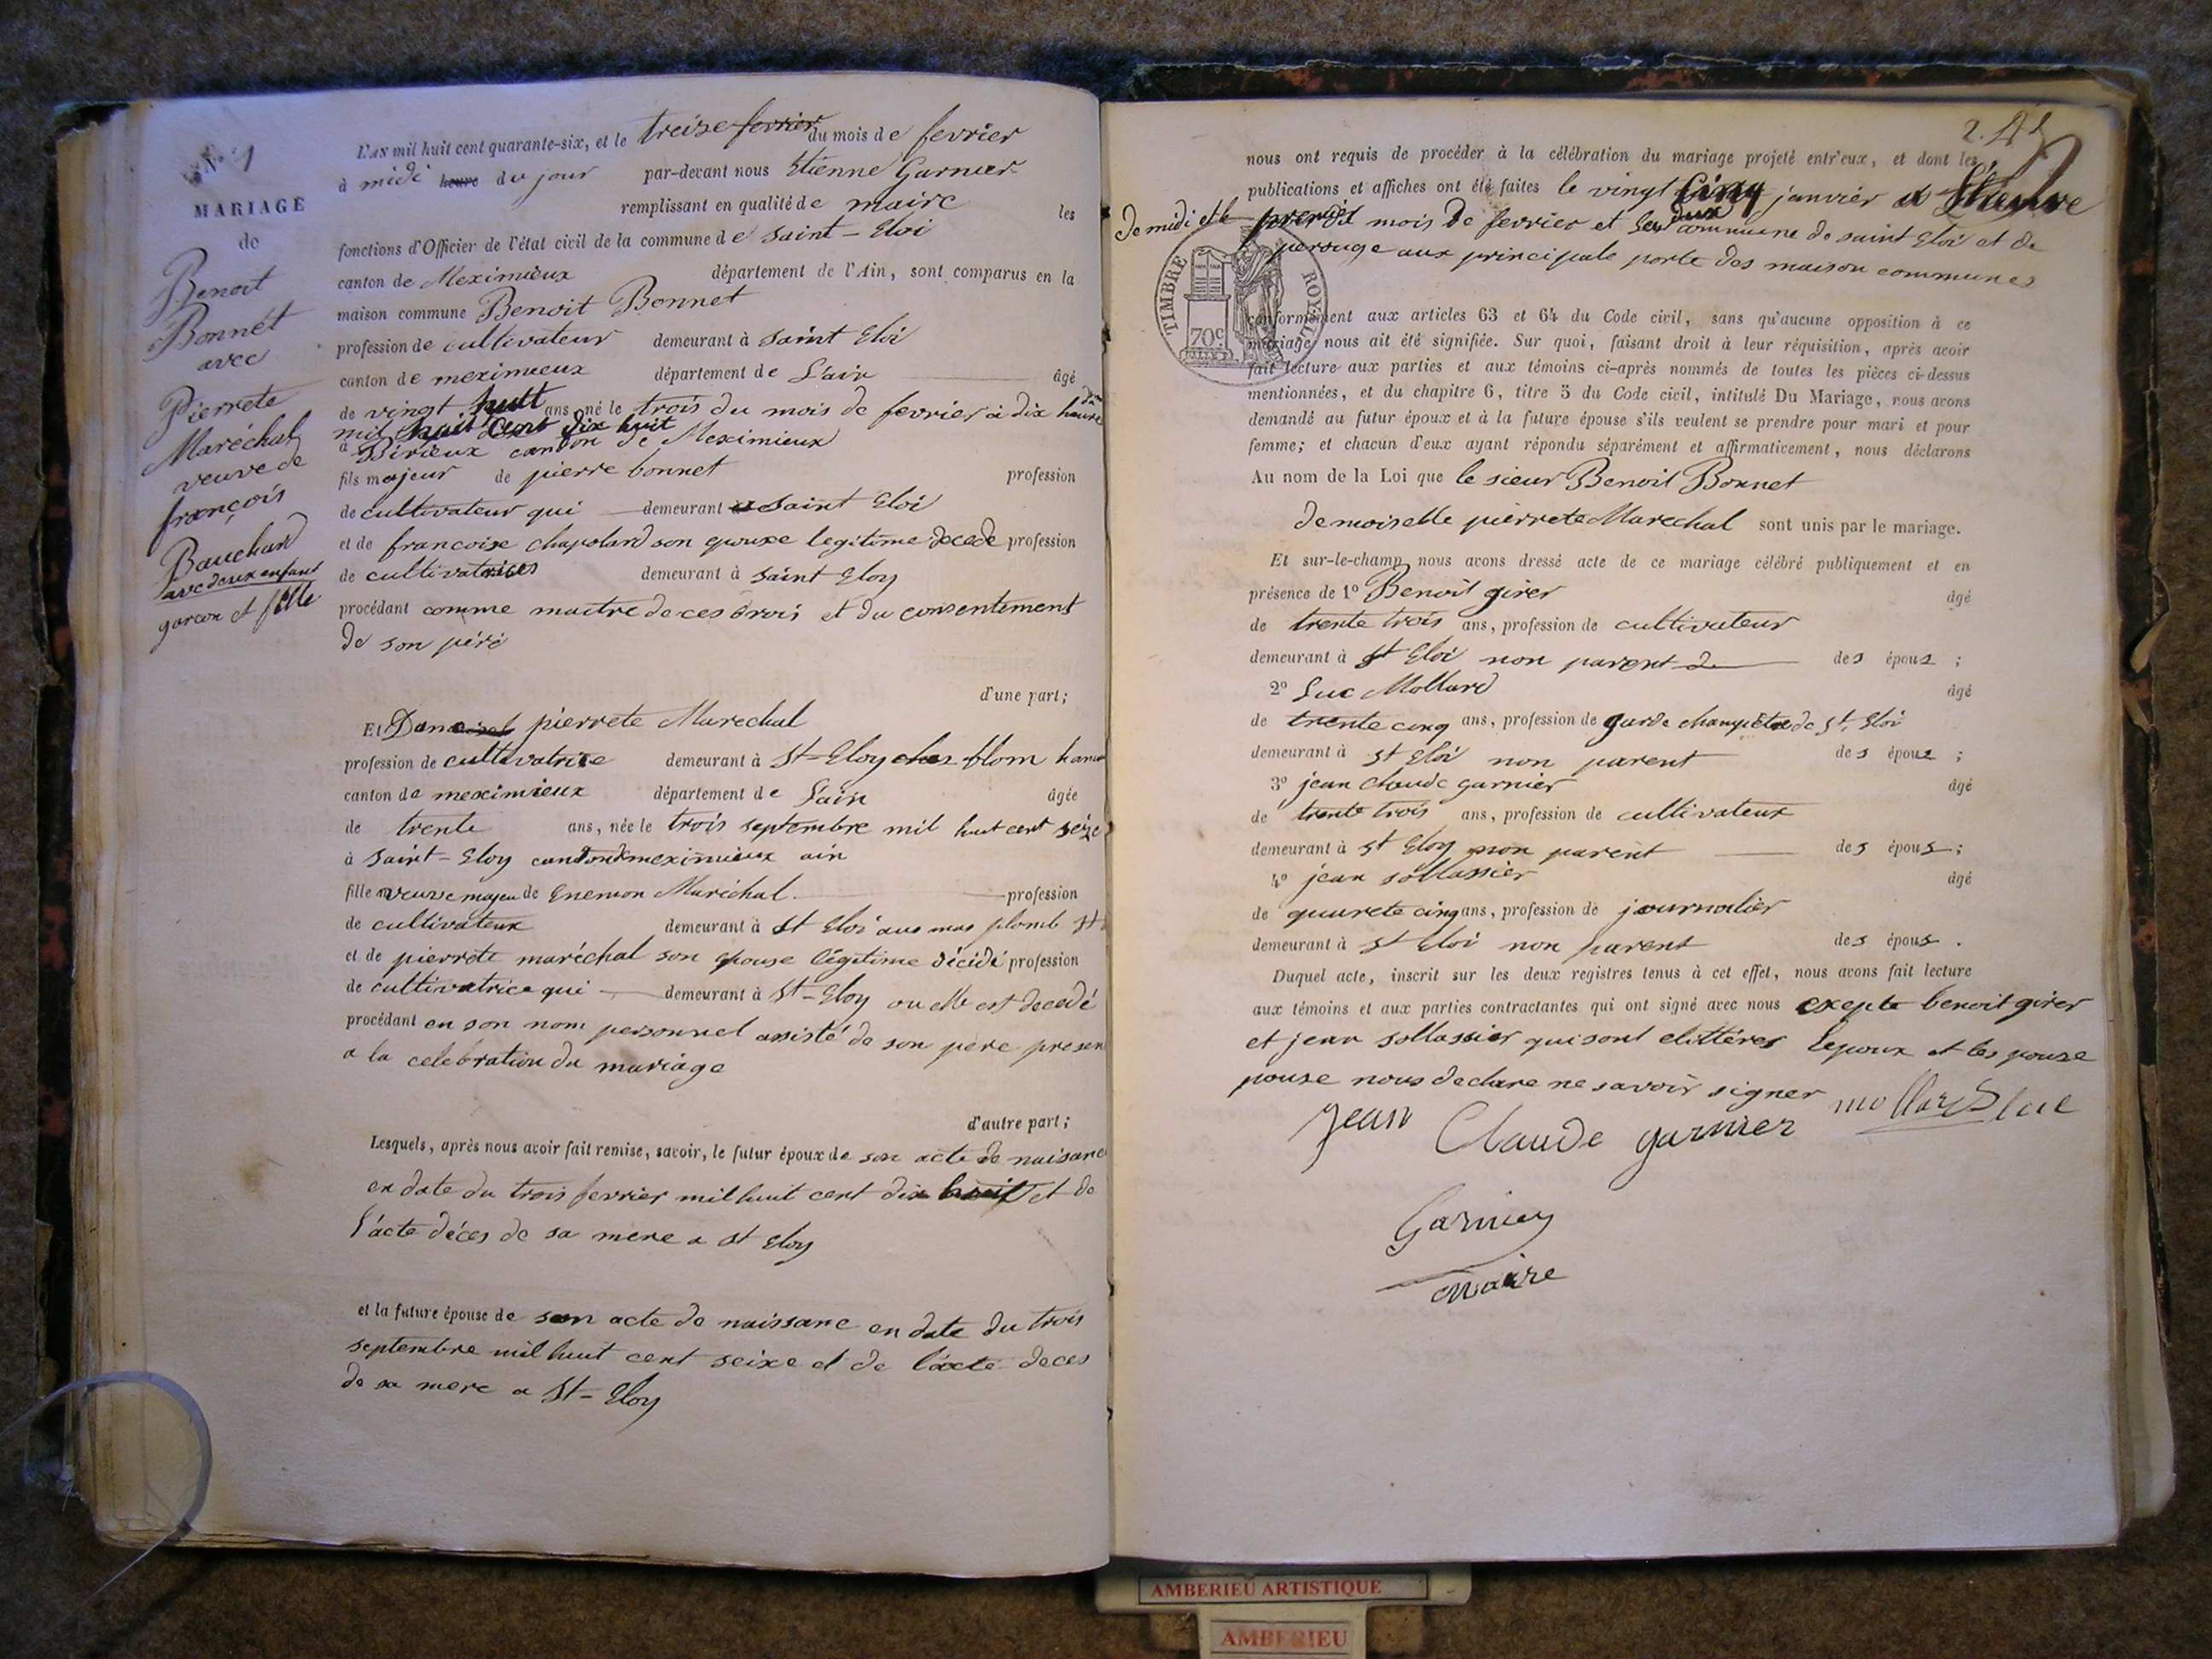 N° 1
MARIAGE
de
Benoit
Bonnét
avec
Pierrete
Maréchal
veuve de
françois
Bauchard
avec deux enfant
garcon et fille
L'AN mil huit cent quarante-six, et le treize fevrier du mois de fevrier
à midi heure du jour par-devant nous Etienne Garnier
remplissant en qualité de maire les
fonctions d'Officier de l'état civil de la commune de Saint-Eloi
canton de Meximieux département de l'Ain, sont comparus en la
maison commune Benoit Bonnet
profession de cultivateur demeurant à Saint Eloi
canton de meximieux département de L'ain âgé
de vingt huit ans, né le trois du mois de fevrier à dix heure
mil huit Cent dix huit
à Birieux canton de Meximieux
fils majeur de pierre bonnet profession
de cultivateur qui demeurant a Saint Eloi
et de francoise chapolard son epouxe legitime decede profession
de cultivatrices demeurant à Saint Eloy
procédant comme maitre de ces drois et du consentement
de son péré
d'une part;
Et pierrete Marechal
profession de cultivatrice demeurant à St-Eloy
canton de meximieux département de L'ain âgée
de trente ans, née le trois septembre mil huit cent seize
à Saint-Eloy canton de meximieux ain
fille veuve de Enemon Maréchal profession
de cultivateur demeurant à St Eloi au mas plomb St
et de pierrete maréchal son epouse légitime décidé profession
de cultivatrice qui demeurant à St-Eloy ou elle est decedé
procédant en son nom personnel assisté de son père presen
a la celebration du mariage
d'autre part;
Lesquels, après nous avoir fait remise, savoir, le futur époux de son acte de naisance
en date du trois fevrier mil huit cent dix huit et de
l'acte déces de sa mere a St Eloy
et la future épouse de son acte de naissane en date du trois
septembre mil huit cent seixe et de l'acte deces
de sa mere a St-Eloy
nous ont requis de procéder à la célébration du mariage projeté entr'eux, et dont les
publications et affiches ont été faites le vingt Cinq janvier a
de midi et le premier mois de fevrier et les deux commune de saint Eloi et de
perouge aux principale porte des maison communes
TIMBRE ROYAL
70c
conformément aux articles 63 et 64 du Code civil, sans qu'aucune opposition à ce
mariage nous ait été signifiée. Sur quoi, faisant droit à leur réquisition, après avoir
fait lecture aux parties et aux témoins ci-après nommés de toutes les pièces ci-dessus
mentionnées, et du chapitre 6, titre 5 du Code civil, intitulé Du Mariage, nous avons
demandé au futur époux et à la future épouse s'ils veulent se prendre pour mari et pour
femme; et chacun d'eux ayant répondu séparément et affirmativement, nous déclarons
Au nom de la Loi que le sieur Benoit Bonnet
demoiselle pierrete Marechal sont unis par le mariage.
Et sur-le-champ nous avons dressé acte de ce mariage célébré publiquement et en
présence de 1° Benoit girer âgé
de trente trois ans, profession de cultivateur
demeurant à St Eloi non parent de des épous ;
2° Luc Mollard âgé
de trente cinq ans, profession de garde champêtre de St. Eloi
demeurant à St Eloi non parent des épous ;
3° jean claude garnier âgé
de trente trois ans, profession de cultivateur
demeurant à St Eloy non parent des épous ;
4° jean sollassier âgé
de quarete cinq ans, profession de journalier
demeurant à St Eloi non parent des épous .
Duquel acte, inscrit sur les deux registres tenus à cet effet, nous avons fait lecture
aux témoins et aux parties contractantes qui ont signé avec nous exepte benoit girer
et jean sollassier qui sont elittéres Lepoux et les pouze
pouse nous declare ne savoir signer
mollard luc
Jean Claude garnier
Garnier
maire
AMBERIEU ARTISTIQUE
AMBERIEU